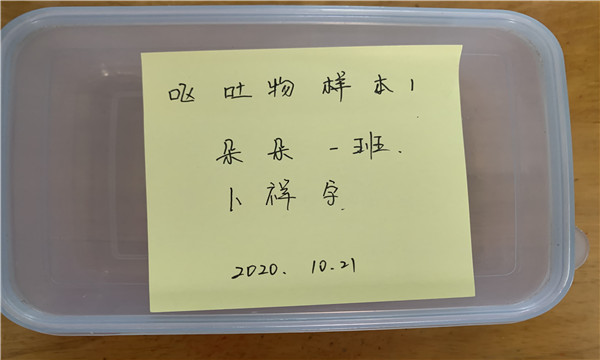 呕吐物样本1
朵朵一班.
卜祥宇
2020.10.21